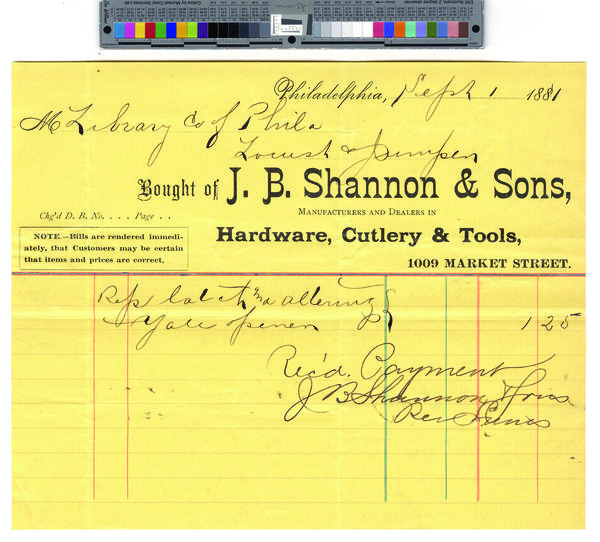 Philadelphia, Sept 1 1881
M Library Co of Phila
Locust & Juniper
Bought of J. B. Shannon & Sons,
MANUFACTURERS AND DEALERS IN
Chg'd D. B. No. . . . Page . .
Hardware, Cutlery & Tools,
NOTE.—Bills are rendered immedi-
ately, that Customers may be certain
that items and prices are correct.
1009 MARKET STREET.
Rep latch and altering
Yale opener 1 25
Rec'd. Payment
J B Shannon & Sons
Per